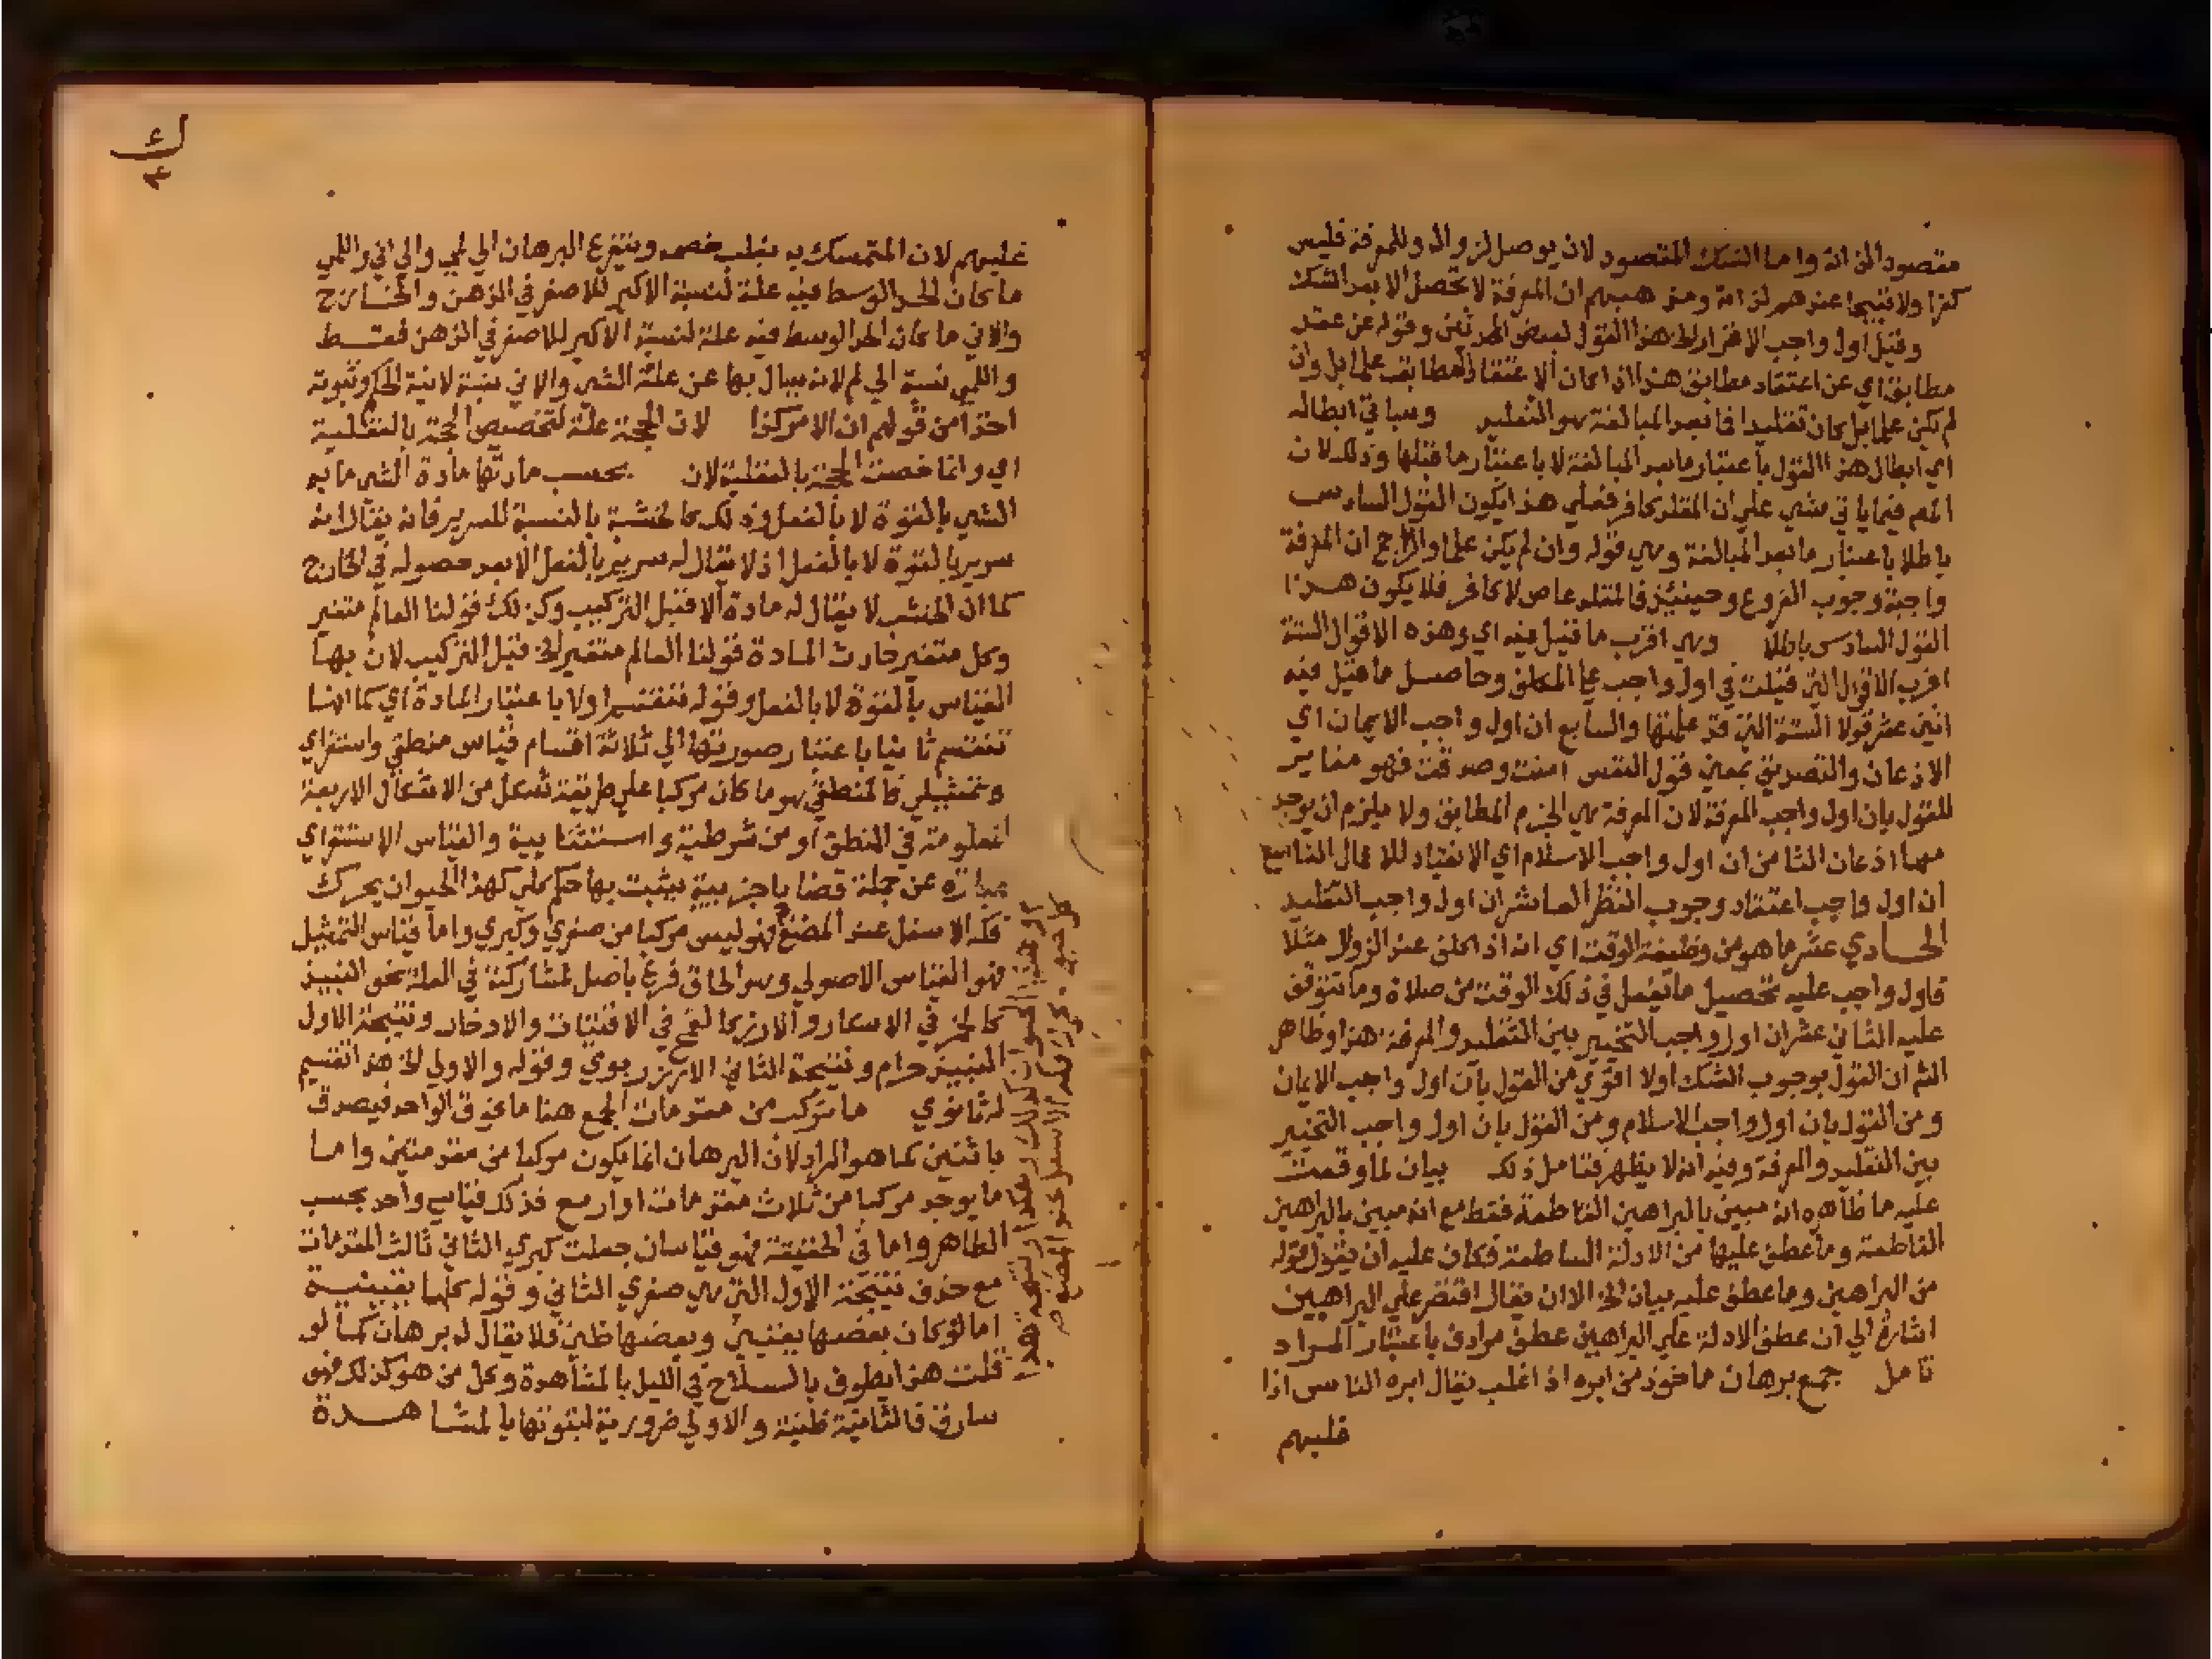 مقصود المزانة واما الشك المقصود لان يوصل لزواله وللمعرفة فليس
كفرا ولا قبيحا عندهم لذاته ومذهبهم ان المعرفة لا تحصل الا بعد الشك
وقيل اول واجب الاقرار الخ هذا القول لبعض المحدثين وقوله عن عقد
مطابق اي عن اعتقاد مطابق هذا اذا كان الاعتقاد المطابق علما بل وان
لم يكن علما بل كان تقليدا فما بعد المبالغة هو التقليد وسياتي ابطاله
اي ابطال هذا القول باعتبار ما بعد المبالغة لا باعتبار ما قبلها وذلك لان
المصم فيما ياتي مشي علي ان المقلد كافر فعلي هذا يكون القول السادس
باطلا باعتبار ما بعد المبالغة وهي قوله وان لم يكن علما والراجح ان المعرفة
واجبة وجوب الفروع وحينئذ فالمقلد عاص لا كافر فلا يكون هذا
القول السادس باطلا وهي اقرب ما قيل فيه اي وهذه الاقوال الستة
اقرب الاقوال التي قيلت في اول واجب علي المكلف وحاصل ما قيل فيه
اثني عشر قولا الستة التي قد علمتها والسابع ان اول واجب الايمان اي
الاذعان والتصديق بمعني قول النفس امنت وصدقت فهو مغاير
للقول بان اول واجب المعرفة لان المعرفة هي الجزم المطابق ولا يلزم ان يوجد
معها اذعان الثامن ان اول واجب الاسلام اي الانقياد للاعمال التاسع
ان اول واجب اعتقاد وجوب النظر العاشر ان اول واجب التقليد
الحادي عشر ما هو من وظيفة الوقت اي انه اذا كلف عند الزوال مثلا
فاول واجب عليه تحصيل ما يفعل في ذلك الوقت من صلاة وما تتوقف
عليه الثاني عشر ان اول واجب التخيير بين التقليد والمعرفة هذا وظاهر
الشم ان القول بوجوب الشك اولا اقوي من القول بان اول واجب الايمان
ومن القول بان اول واجب الاسلام ومن القول بان اول واجب التخيير
بين التقليد والمعرفة وفيه انه لا يظهر فتامل ذلك بيان لما وقعت
عليه ما ظاهره انه مبين بالبراهين القاطعة فقط مع انه مبين بالبراهين
القاطعة وما عطف عليها من الادلة الساطعة فكان عليه ان يقول قوله
من البراهين وما عطف عليه بيان الخ الا ان يقال اقتصر علي البراهين
اشارة الي ان عطف الادلة علي البراهين عطف مرادف باعتبار المراد
تامل جمع برهان ماخوذ من ابره اذا غلب يقال ابره الناس اذا
غلبهم
غلبهم لان المتمسك به يغلب خصمه ويتفرع البرهان الي لمي والي اني واللمي
ما كان الحد الوسط فيه علة لنسبة الاكبر للاصغر في الذهن والخارج
والاني ما كان الحد الوسط فيه علة لنسبة الاكبر للاصغر في الذهن فقط
واللمي نسبة الي لم لانه يسال بها عن علة الشي والاني نسبة لانية الحكم وثبوته
اخذا من قولهم ان الامر كذا لان الحجة علة لتخصيص الحجة بالعقلية
اي وانما خصت الحجة بالعقلية لان بحسب مادتها مادة الشي ما به
الشي بالقوة لا بالفعل وذلك كالخشبة بالنسبة للسرير فانه يقال انه
سرير بالقوة لا بالفعل اذ لا يقال له سرير بالفعل الا بعد حصوله في الخارج
كما ان الخشب لا يقال له مادة الا قبل التركيب وكذلك قولنا العالم متغير
وكل متغير حادث المادة قولنا العالم متغير الخ قبل التركيب لان بها
القياس بالقوة لا بالفعل وقوله تنقسم اولا باعتبار المادة اي كما انها
تنقسم ثانيا باعتبار صورتها الي ثلاثة اقسام قياس منطقي واستقراي
وتمثيلي فالمنطقي هو ما كان مركبا علي طريقة شكل من الاشكال الاربعة
المعلومة في المنطق او من شرطية واستثنايية والقياس الاستقراي
عبارة عن جملة قضايا جزييية يثبت بها حكم كلي كهذا الحيوان يحرك
فكه الاسفل عند المضغ فهو ليس مركبا من صغري وكبري واما قياس التمثيل
فهو القياس الاصولي وهو الحاق فرع باصل لمشاركته في العلة نحو النبيذ
كالخمر في الاسكار والارز كالقمح في الاقتيات والادخار ونتيجة الاول
النبيذ حرام ونتيجة الثاني الارز ربوي وقوله والاولي لان هذا تقسيم
له ثانوي ما تركب من مقدمات الجمع هنا ما فوق الواحد فيصدق
باثنين كما هو المراد لان البرهان انما يكون مركبا من مقدمتين واما
ما يوجد مركبا من ثلاث مقدمات او اربع فذلك قياس واحد بحسب
الظاهر واما في الحقيقة فهو قياسان جعلت كبري الثاني ثالث المقدمات
مع حذف نتيجة الاول التي هي صغري الثاني وقوله كلها يقينية
اما لو كان بعضها يقيني وبعضها ظني فلا يقال له برهان كما لو
قلت هذا يطوف بالسلاح في الليل بالمشاهدة وكل من هو كذلك فهو
سارق فالثانية ظنية والاولي ضرورية لثبوتها بالمشاهدة